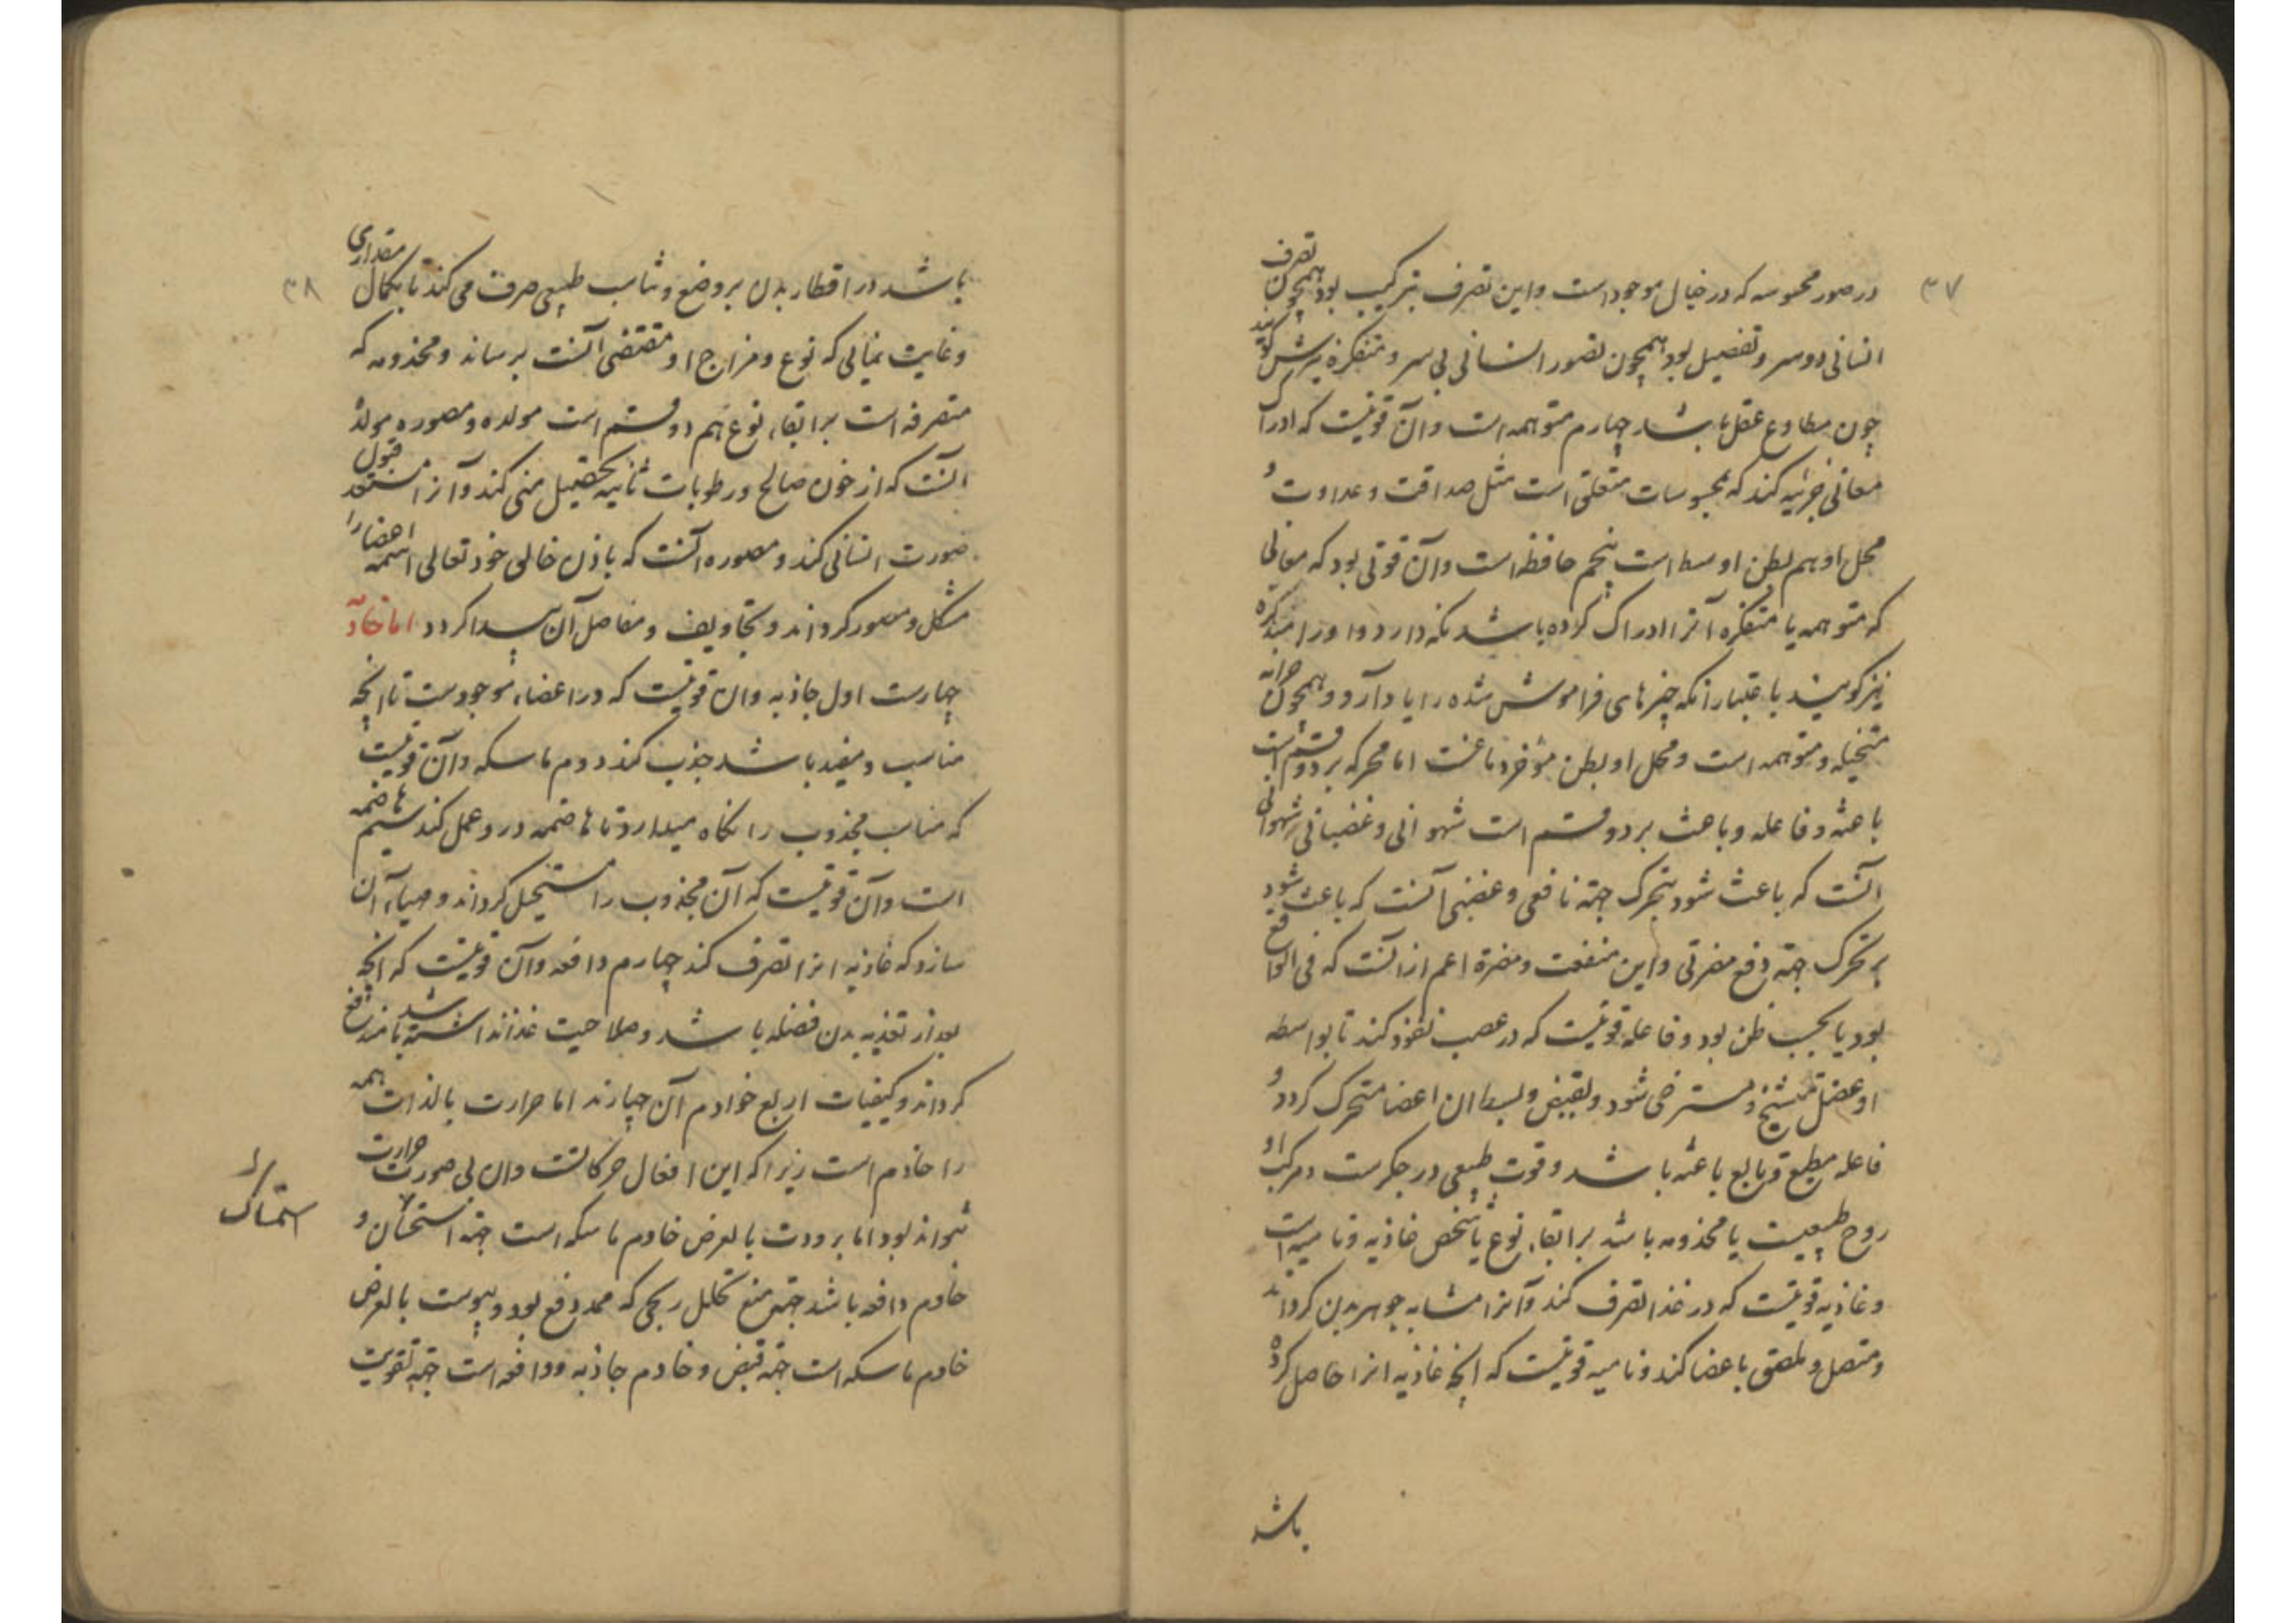 ۳۷
در صور محسوسه که در خیال موجود است و این تصرف بترکیب بود همچون تصرف
انسانی دو سر و تفصیل بود همچون تصور انسانی بی سر و متفکره نیزش گویند
چون مطاوع عقل باشد چهارم متوهمه است و آن قوتیست که ادراک
معانی جزئیه کند که بمحسوسات متعلق است مثل صداقت و عداوت و
محل او هم بطن اوسط است پنجم حافظه است و آن قوتی بود که معانی
که متوهمه یا متفکره آنرا ادراک کرده باشد نکه دارد و او را متذکره
نیز گویند باعتبار آنکه چیزهای فراموش شده را یاد آرد و همچون خزانه
متخیله و متوهمه است و محل او بطن مؤخر دماغست اما محرکه بر دو قسم است
باعثه و فاعله و باعث بر دو قسم است شهوانی و غضبانی شهوانی
آنست که باعث شود بتحرک جهة نافعی و غضبی آنست که باعث شود
بر تحرک جهة دفع مضرتی و این منفعت و مضرة اعم از آنست که فی الواقع
بود یا بحسب ظن بود و فاعله قوتیست که در عصب نفوذ کند تا بواسطه
او عضل متشنج و مسترخی شود و بقبض و بسط ان اعضا متحرک کردد و
فاعله مطیع و تابع باعثه باشد و قوت طبیعی در جکرست و مرکب او
روح طبیعیست یا مخدومه باشد برا بقاء نوع یا شخص غاذیه و نامیه است
و غاذیه قوتیست که در غذا تصرف کند و آنرا مشابه جوهر بدن کرداند
و متصل و ملصق باعضا کند و نامیه قوتیست که انچه غاذیه انرا حاصل کرده
باشد
۳۸
باشد در اقطار بدن بر وضع و تناسب طبیعی صرف می کند تا بکمال مقداری
و غایت نمائی که نوع و مزاج او مقتضی آنست برساند و مخدومه که
متصرفه است برا بقاء نوع هم دو قسم است مولده و مصوره مولده
آنست که از خون صالح و رطوبات ثانیه تحصیل منی کند و آنرا مستعد قبول
صورت انسانی کند و مصوره آنست که باذن خالق خود تعالی اسمه اعضا را
مشکل و مصور کرداند و تجاویف و مفاصل آن پیدا کردد اما خادمه
چهارست اول جاذبه و ان قوتیست که در اعضاء موجودست تا انچه
مناسب و مفید باشد جذب کند دوم ماسکه و آن قوتیست
که مناسب مجذوب را نکاه میدارد تا هاضمه درو عمل کند سیم هاضمه
است و آن قوتیست که آن مجذوب را مستحیل کرداند و مهیاء آن
سازد که غاذیه انرا تصرف کند چهارم دافعه و آن قوتیست که انچه
بعد از تغذیه بدن فضله باشد و صلاحیت غذا نداشته باشد مندفع
کرداند و کیفیات اربع خوادم آن چهارند اما حرارت بالذات همه
را خادم است زیرا که این افعال حرکاتست و ان بی صورت حرارت
نتواند بود اما برودت بالعرض خادم ماسکه است جهة و
خادم دافعه باشد جهة منع تحلل ریحی که ممد دفع بود و یبوست بالعرض
خادم ماسکه است جهة قبض و خادم جاذبه و دافعه است جهة تقویت
استمساک